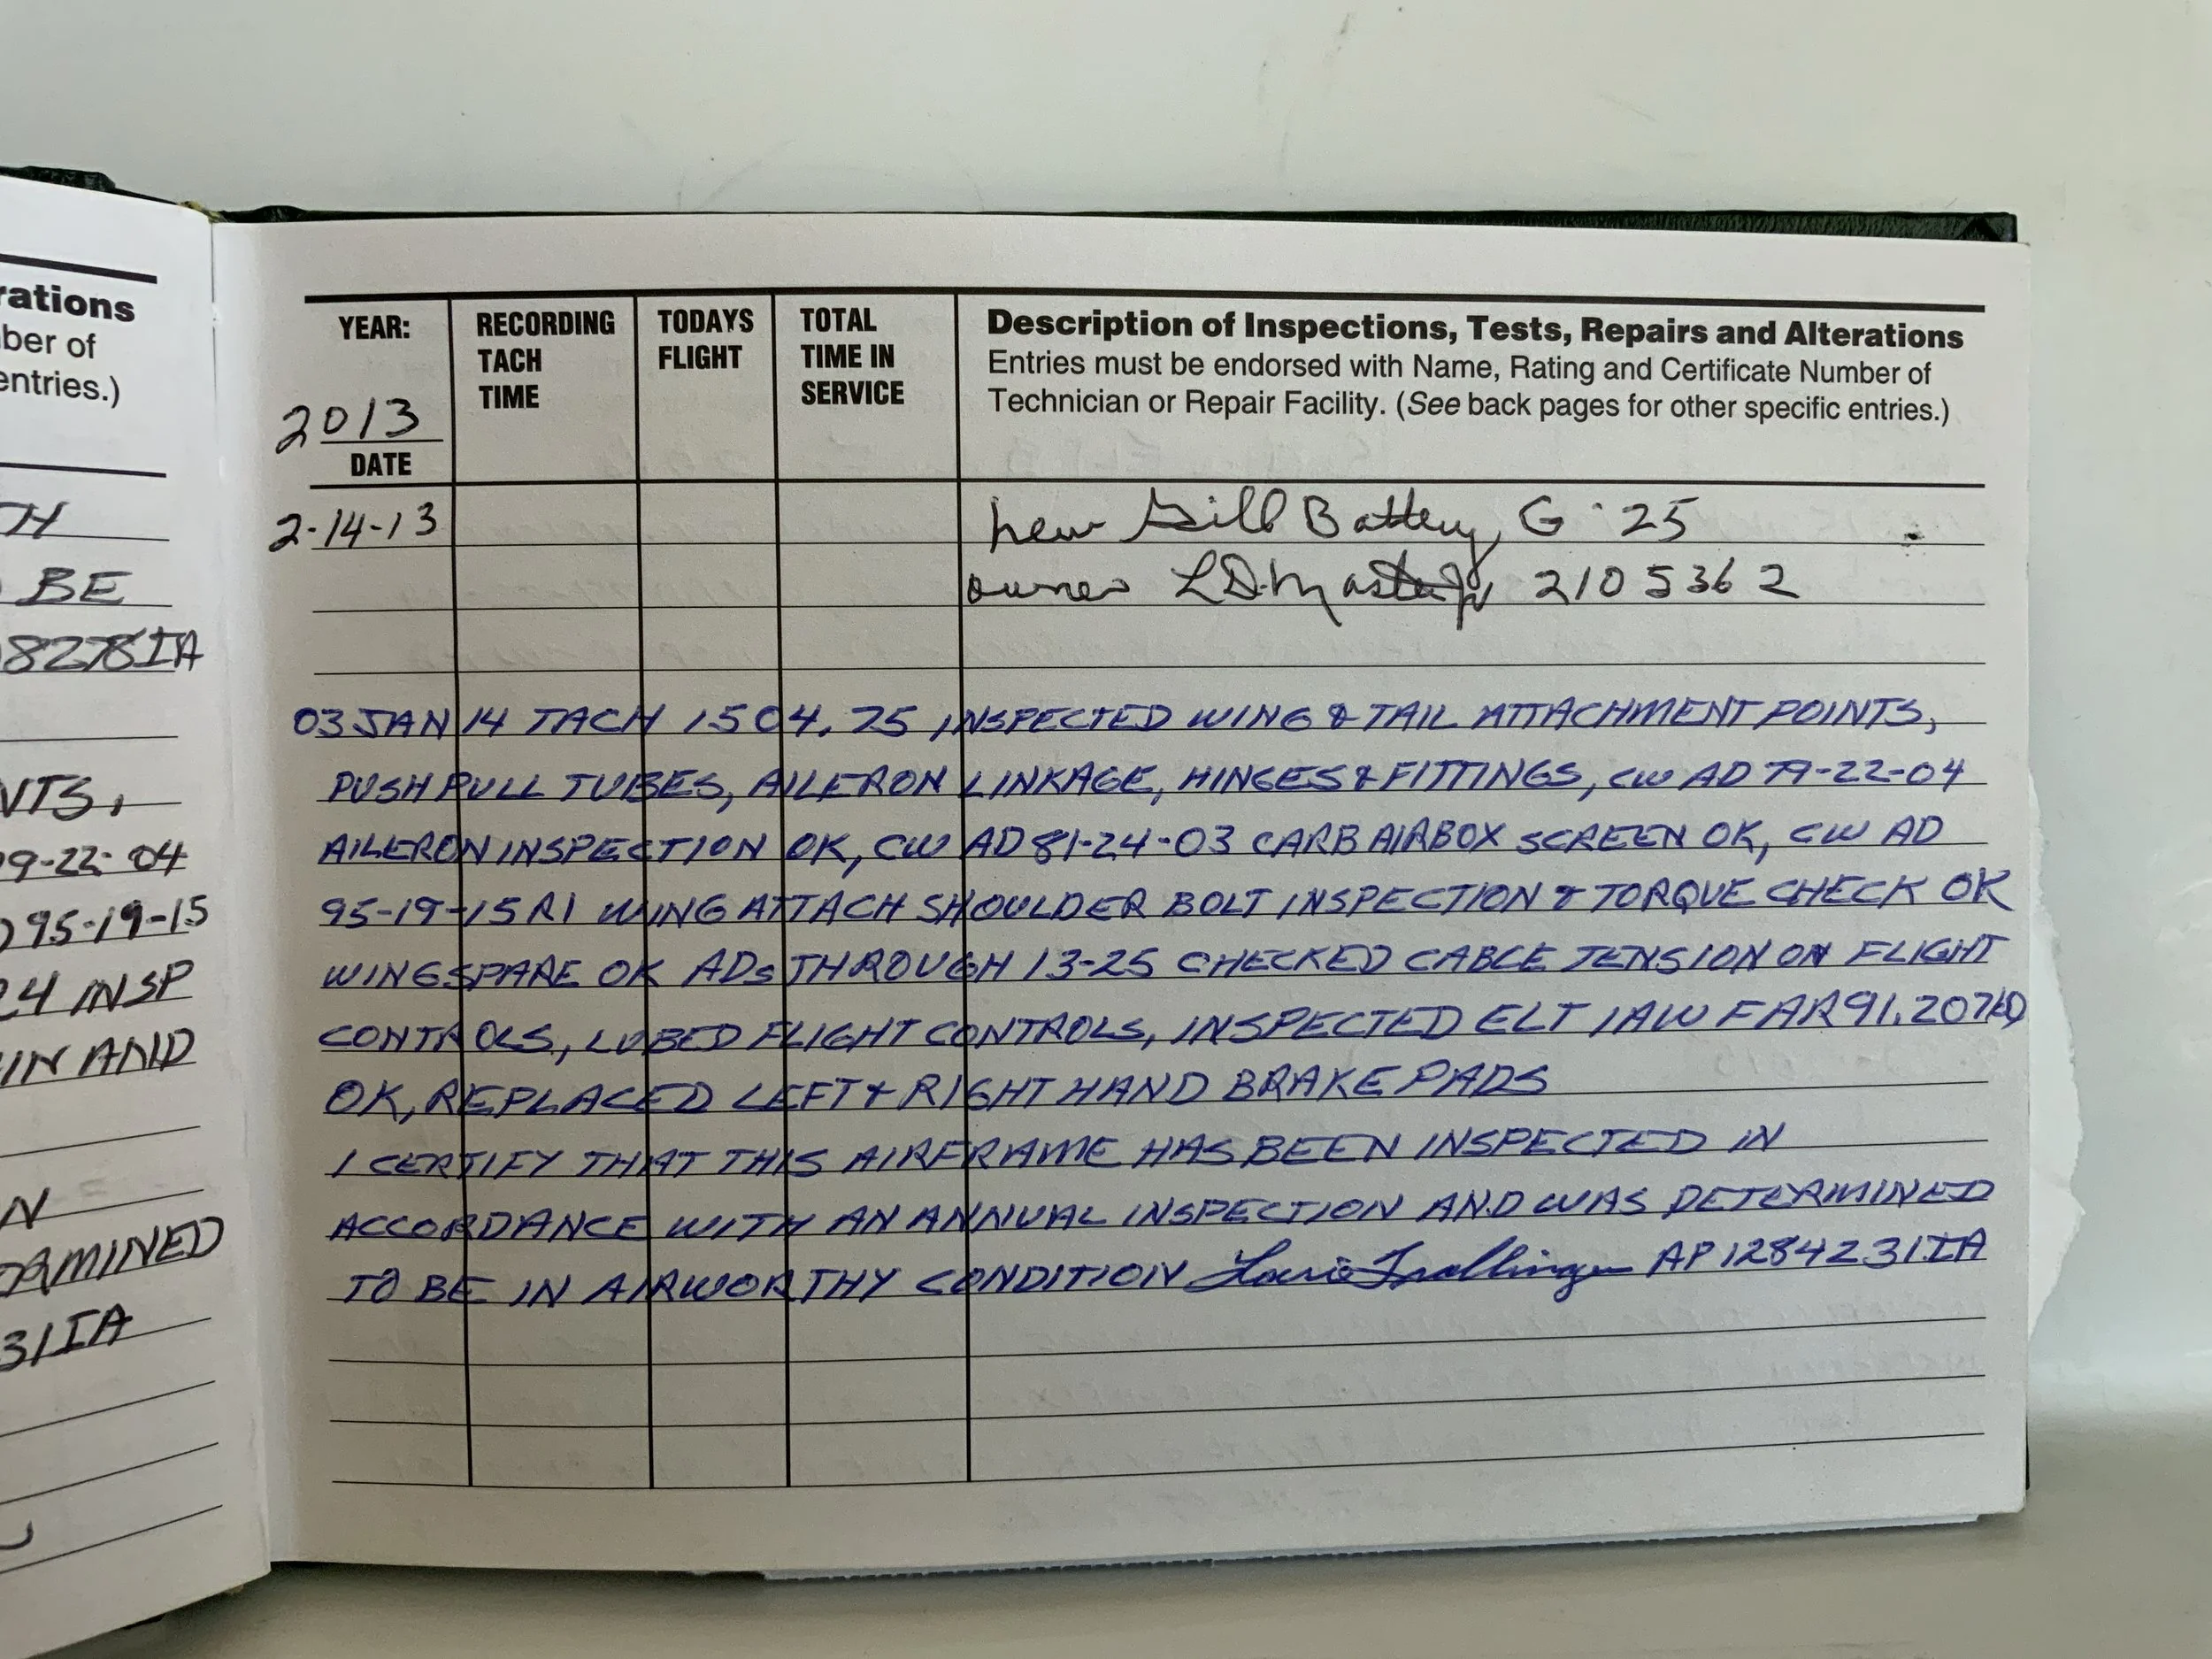 rations
ber of
entries.)
TH
BE
8278IA
NTS,
9-22-04
95-19-15
24 INSP
IN AND
N
RMINED
31IA
YEAR:
2013
DATE
RECORDING
TACH
TIME
TODAYS
FLIGHT
TOTAL
TIME IN
SERVICE
Description of Inspections, Tests, Repairs and Alterations
Entries must be endorsed with Name, Rating and Certificate Number of
Technician or Repair Facility. (See back pages for other specific entries.)
2-14-13 new Gill Battery, G-25
owner 2105362
03 JAN 14 TACH 1504.75 INSPECTED WING & TAIL ATTACHMENT POINTS,
PUSH PULL TUBES, AILERON LINKAGE, HINGES & FITTINGS, CW AD 79-22-04
AILERON INSPECTION OK, CW AD 81-24-03 CARB AIRBOX SCREEN OK, CW AD
95-19-15 R1 WING ATTACH SHOULDER BOLT INSPECTION & TORQUE CHECK OK
WING SPARE OK ADs THROUGH 13-25 CHECKED CABLE TENSION ON FLIGHT
CONTROLS, LUBED FLIGHT CONTROLS, INSPECTED ELT IAW FAR 91.207(D)
OK, REPLACED LEFT & RIGHT HAND BRAKE PADS
I CERTIFY THAT THIS AIRFRAME HAS BEEN INSPECTED IN
ACCORDANCE WITH AN ANNUAL INSPECTION AND WAS DETERMINED
TO BE IN AIRWORTHY CONDITION AP 1284231 IA